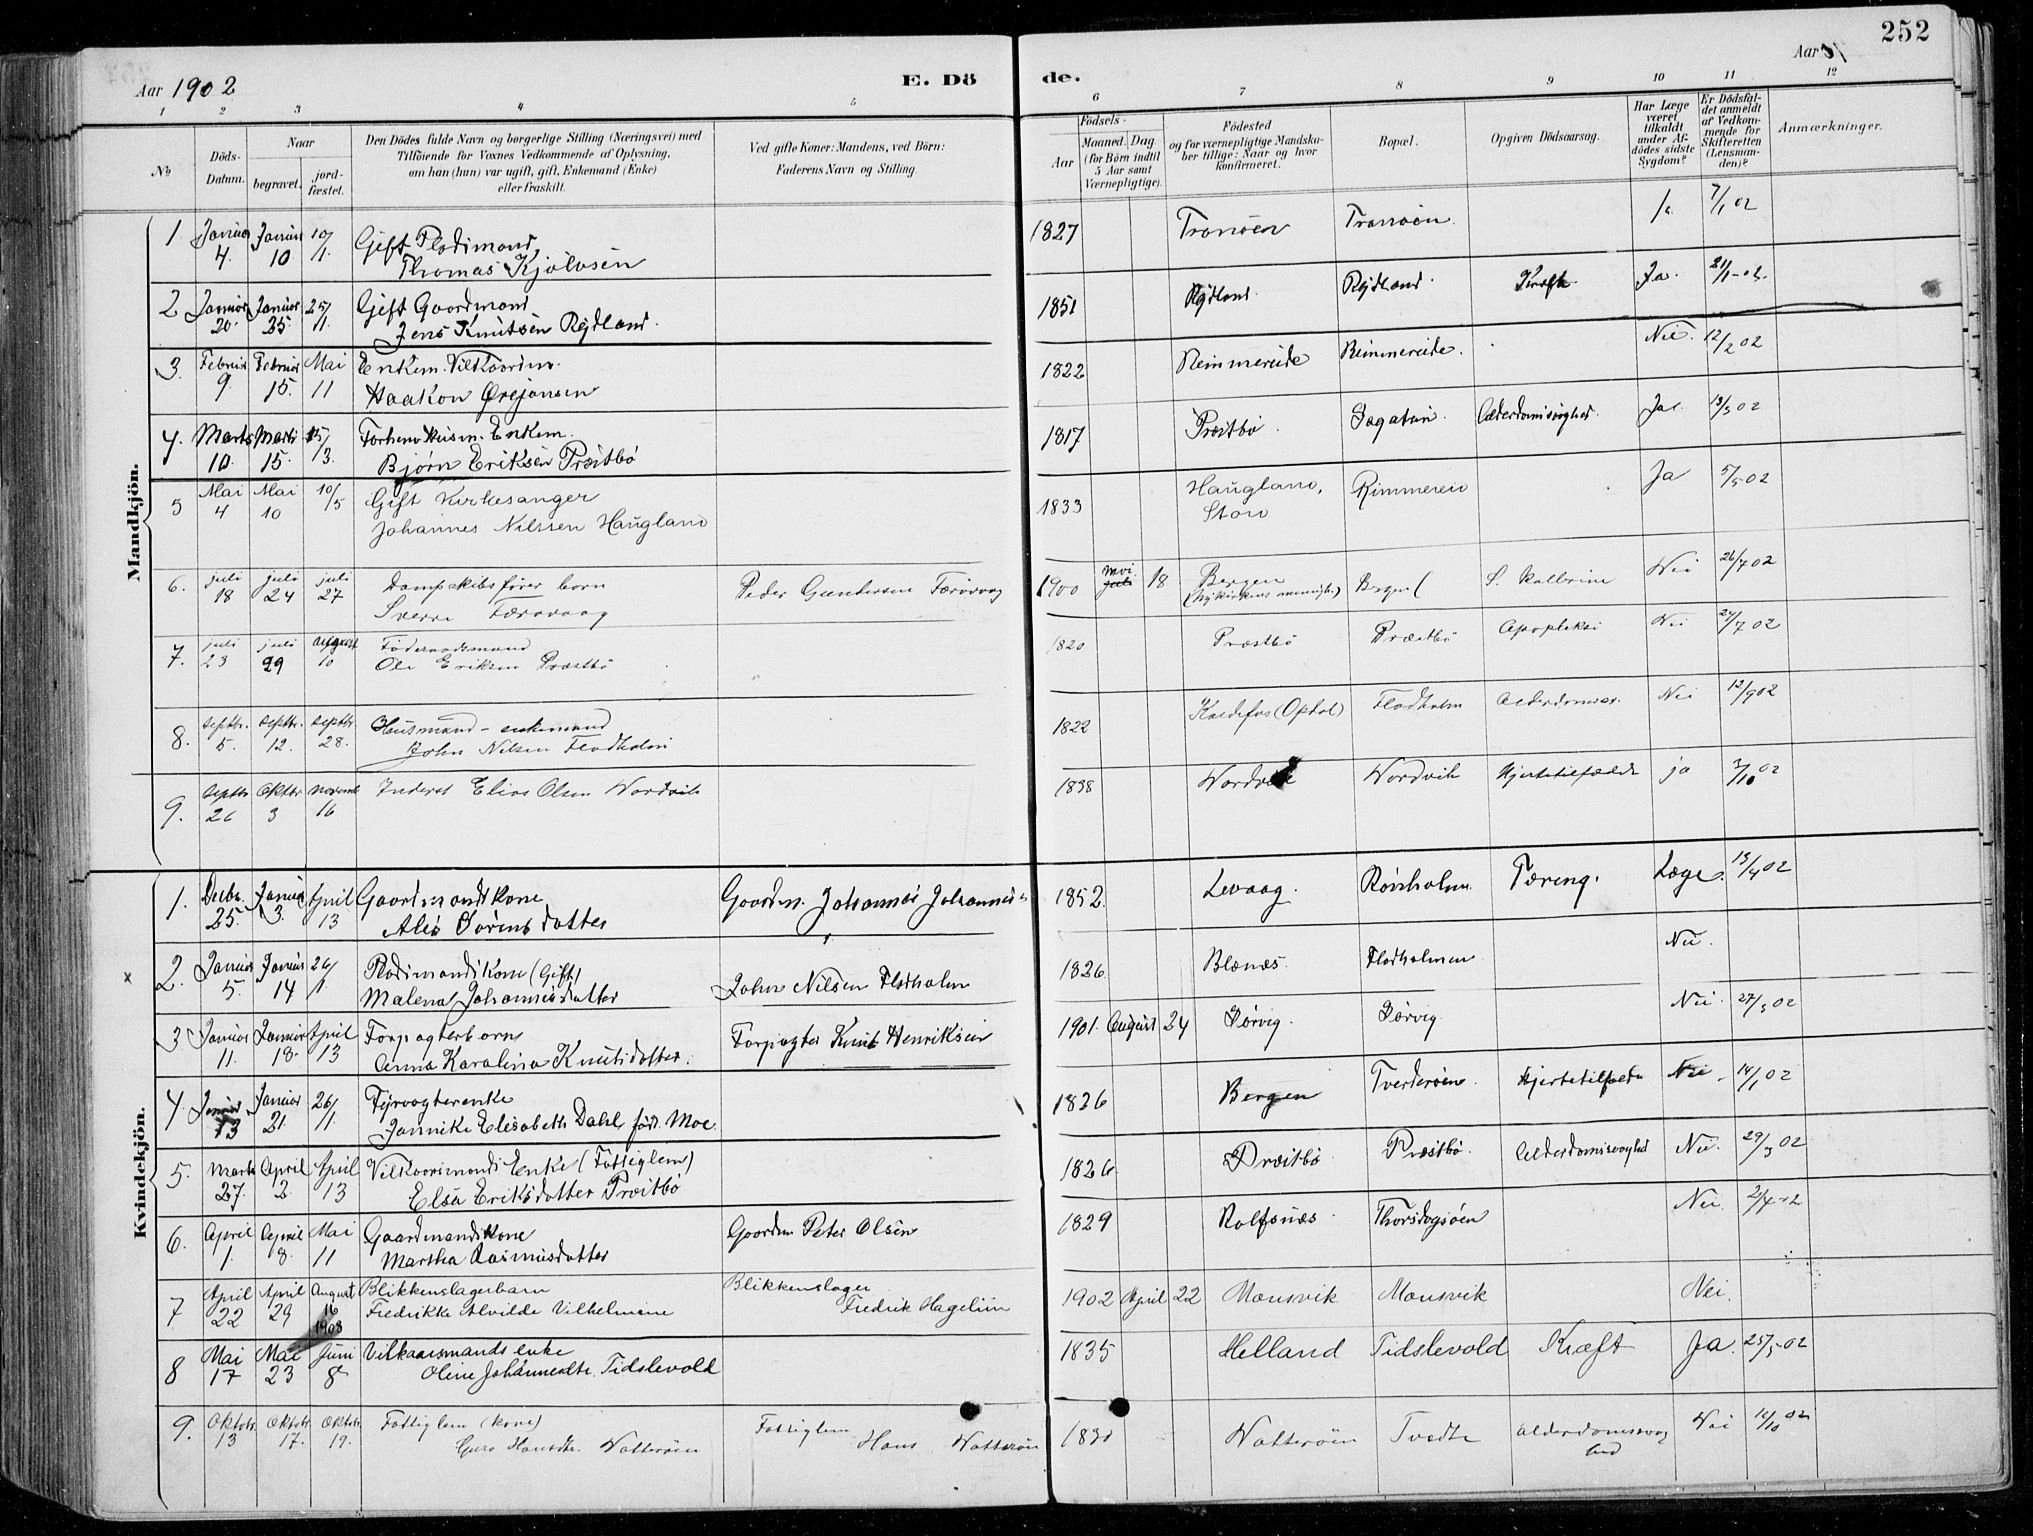 252
Aar 1902
E. Dö de.
Aar
1 2 3 4 5 6 7 8 9 10 11 12
No
Döds-Datum.
Naar
begravet.
jord-fæstet.
Den Dödes fulde Navn og borgerlige Stilling (Næringsvei) med
Tilföiende for Voxnes Vedkommende af Oplysning,
om han (hun) var ugift, gift, Enkemand (Enke)
eller fraskilt.
Ved gifte Koner: Mandens, ved Börn:
Faderens Navn og Stilling.
Födsels-
Aar
Maaned. Dag
(for Börn indtil
5 Aar samt
Værnepligtige).
Födested
og for værnepligtige Mandska-
ber tillige: Naar og hvor
konfirmeret.
Bopæl.
Opgiven Dödsaarsag.
Har Læge
været
tilkaldt
under Af-
dödes sidste
Sygdom?
Er Dödsfal-
det anmeldt
af Vedkom-
mende for
Skifteretten
(Lensman-
den)?
Anmærkninger.
Mandkjön.
1 Januar 4. Januar 10 10/1. Gift Pladsmand 1827 Tranöen Tranöen. Ja. 7/1 02
Thomas Kjølvsen
2 Januar 20. Januar 25 25/1 Gift Gaardmand 1851 Røjdland. Røjdland. Kræft Ja. 21/1-02.
Jens Knutsen Røjdland.
3. Februar 9 Februar 15. Mai 11 Enkem. Vilkaarsm. 1822 Remmereide Remmereide. Nei. 12/2 02
Haakon Ørejansen
4. Marts 10. Marts 15. 15/3. Forhenv Husm. Enkem. 1817 Præstbö. Sagatun. Alderdomssvaghed. Ja. 13/3 02
Bjørn Eriksen Præstbö
5 Mai 4 Mai 10 10/5 Gift Kirkesanger 1833 Haugland, Stord Rimmereid Ja 5/5 02
Johannes Nilssen Haugland
6. juli 18 juli 24 juli 27 Dampskibsfører barn Peder Gundersen Færøvaag 1900 mai 18 Bergen Bergen Nei 26/7 02
Sverre Færøvaag
7. juli 23 juli 29 august 10 Föderaadsmand 1820 Præstbö Præstbö Apopleksi Nei 24/7 02
Ole Eriksen Præstbö
8. septbr. 5. septbr. 12. septbr. 28. Husmand - enkemand 1822 Kaldefos (Opdal) Fladholm Alderdomssv. Nei 12/9 02
John Nilsen Fladholm
9. septbr 26 oktbr 3 novemb 16 Inderst Elias Olsen Nordvik 1838 Nordvik Nordvik Hjertetilfælde ja 3/10 02
Kvindekjön.
1. Decbr. 25. Januar 3. April 13 Gaardmandskone Gaardm. Johannes Johannes 1852. Levaag. Rövsholm. Tæring. Læge. 13/4 02
Ales Sørensdatter
2. Januar 5. Januar 14 26/1 Pladsmandskone (Gift) John Nilsen Fladholm 1826 Blænæs. Fladholmen Nei.
Malena Johannesdatter
3 Januar 11. Januar 18. April 13 Forpagterbarn Forpagter Knut Henriksen 1901. August 24 Sørvig. Sørvig. Nei. 27/3 02
Anna Karolina Knutsdatter.
4. Januar 13 Januar 21. 26/1. Fyrvogterenke 1826 Bergen Hjertetilfælde Nei. 14/1 02
Jannike Elisabeth Dahl født Moe.
5. Marts 27. April 2. April 13 Vilkaarsmands Enke (Fattiglem) 1826 Præstbö. Præstbö. Alderdomssvaghed Nei. 29/3 02
Elsa Eriksdatter Præstbö
6. April 1. April 8. Mai 11 Gaardmandskone Gaardm Peter Olsen 1829 Rolfsnæs. Thorsdagsöen Nei. 2/4-02
Martha Rasmusdatter
7 April 22 April 29 August 16 1908 Blikkenslagerbarn Blikkenslager 1902 April 22 Mansvik Mansvik Nei.
Fredrikke Alvilde Vilhelmine Fredrik Hagelin
8 Mai 17 Mai 23 Juni 8 Vilkaarsmands enke 1835 Helland Tidslevold Kræft Ja. 25/5-02
Oline Johannesdtr. Tidslevold
9. Oktobr. 13 Oktobr. 17. Oktobr. 19. Fattiglem (kone) Fattiglem 1830 Natteröen Tvedte alderdomssvaghed Nei 14/10 02
Guro Hansdtr. Natteröen Hans Natteröen